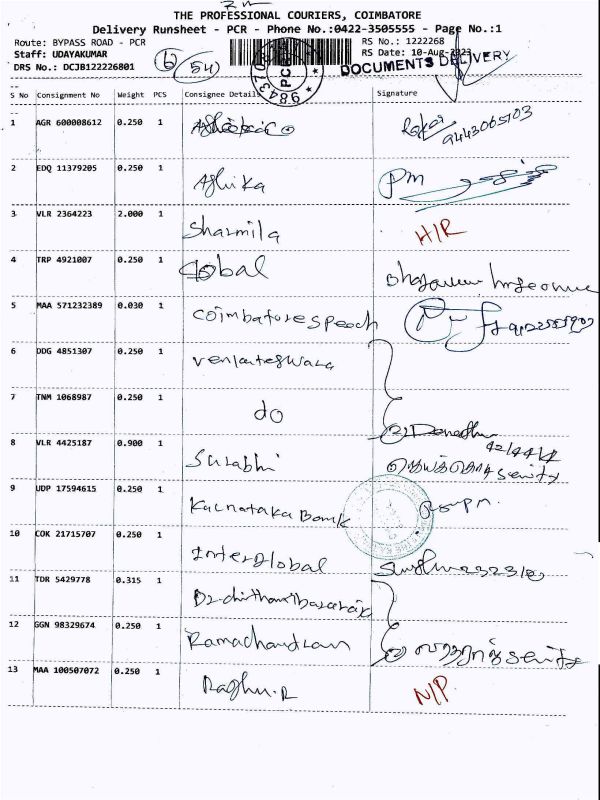 THE PROFESSIONAL COURIERS, COIMBATORE
Delivery Runsheet - PCR - Phone No.:0422-3505555 - Page No.:1
Route: BYPASS ROAD - PCR RS No.: 1222268
Staff: UDAYAKUMAR RS Date: 10-Aug-2023
DRS No.: DCJB122226801 DOCUMENTS DELIVERY
6 54
S No Consignment No Weight PCS Consignee Details Signature
1 AGR 600008612 0.250 1
2 EDQ 11379205 0.250 1 Ashika PM
3 VLR 2364223 2.000 1 Sharmila H/R
4 TRP 4921007 0.250 1 Global
5 MAA 571232389 0.030 1 Coimbatore speech
6 DDG 4851307 0.250 1 Venkateswara
7 TNM 1068987 0.250 1 do
8 VLR 4425187 0.900 1 Surabhi
9 UDP 17594615 0.250 1 Karnataka Bank
10 COK 21715707 0.250 1 Interglobal
11 TDR 5429778 0.315 1
12 GGN 98329674 0.250 1 Ramachandran
13 MAA 100507072 0.250 1 Raghu.R N/P